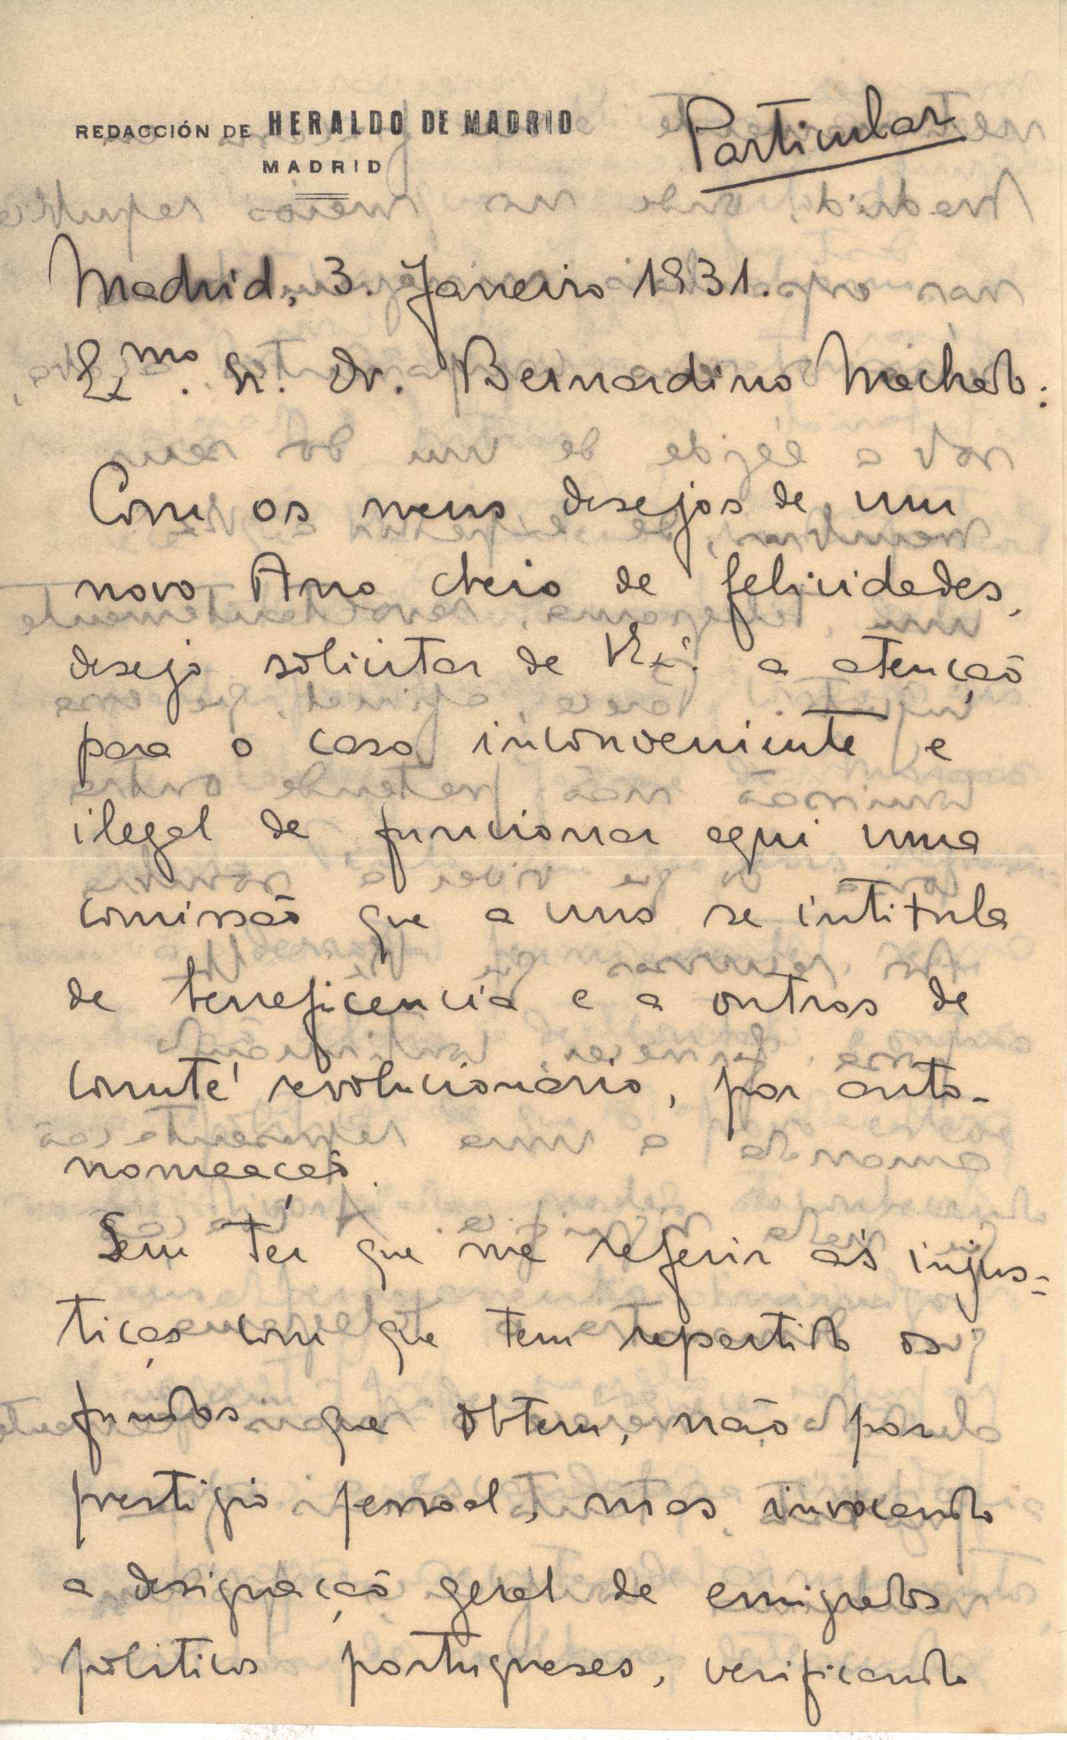 REDACCIÓN DE HERALDO DE MADRID
MADRID
Particular
Madrid, 3. Janeiro 1931.
Ex.mo Sr. Dr. Bernardino Machado:
Com os meus desejos de um
novo Ano cheio de felicidades,
desejo solicitar de V. Ex.ª a atenção
para o caso inconveniente e
ilegal de funcionar aqui uma
comissão que a uns se intitula
de beneficencia e a outros de
comité revolucionário, por auto-
nomeação.
Sem ter que me referir ás injus-
tiças com que tem repartido os
fundos que obtem, não por
prestigio pessoal, mas invocando
a designação geral de emigrados
politicos portugueses, verificando